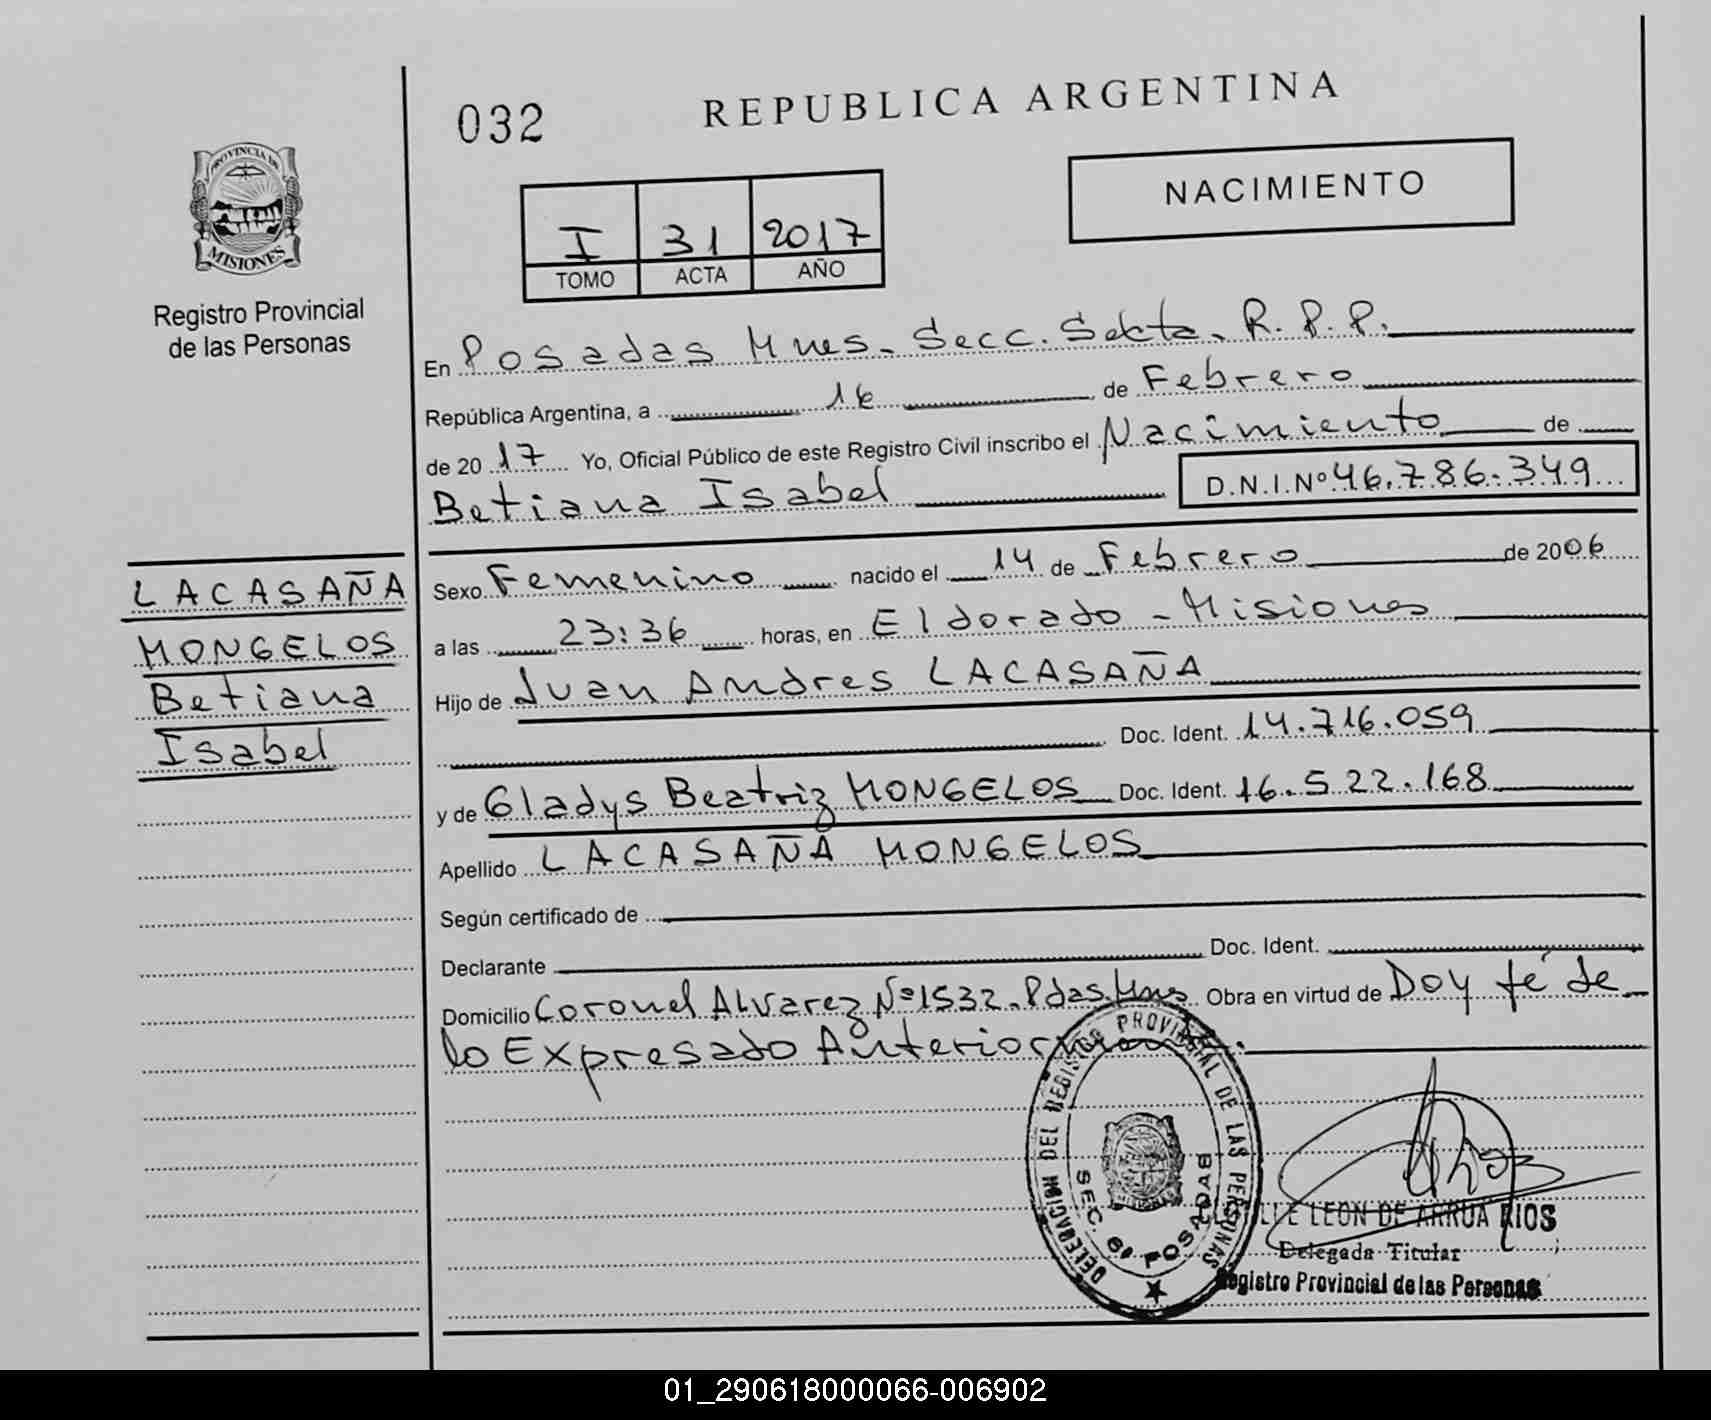 032
REPUBLICA ARGENTINA
PROVINCIA DE
MISIONES
Registro Provincial
de las Personas
NACIMIENTO
I 31 2017
TOMO ACTA AÑO
En Posadas Mnes. Secc. Sexta. R.P.P.
República Argentina, a 16 de Febrero
de 2017 Yo, Oficial Público de este Registro Civil inscribo el Nacimiento de
Betiana Isabel D.N.I.Nº 46.786.349
LACASAÑA
MONGELOS
Betiana
Isabel
Sexo Femenino nacido el 14 de Febrero de 2006
a las 23:36 horas, en Eldorado - Misiones
Hijo de Juan Andres LACASAÑA
Doc. Ident. 14.716.059
y de Gladys Beatriz MONGELOS Doc. Ident. 16.522.168
Apellido LACASAÑA MONGELOS
Según certificado de
Declarante Doc. Ident.
Domicilio Coronel Alvarez Nº 1532. Pdas. Mnes Obra en virtud de Doy fé de
lo Expresado
DELEGACION DEL REGISTRO PROVINCIAL DE LAS PERSONAS
SEC. 6ª POSADAS
LEON DE ARRUA RIOS
Delegada Titular
Registro Provincial de las Personas
01_290618000066-006902